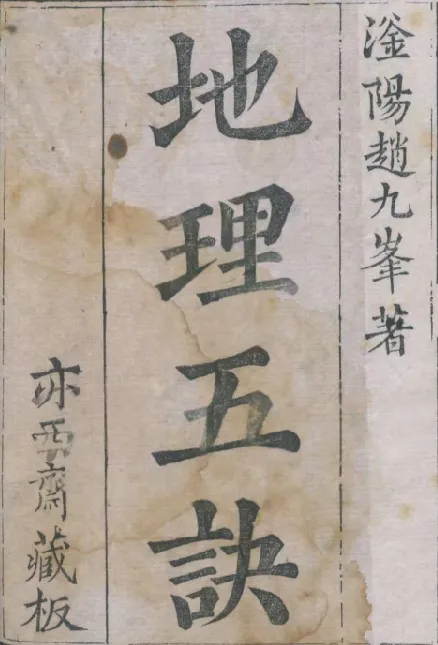 滏陽趙九峯著
地理五訣
亦西齋藏板